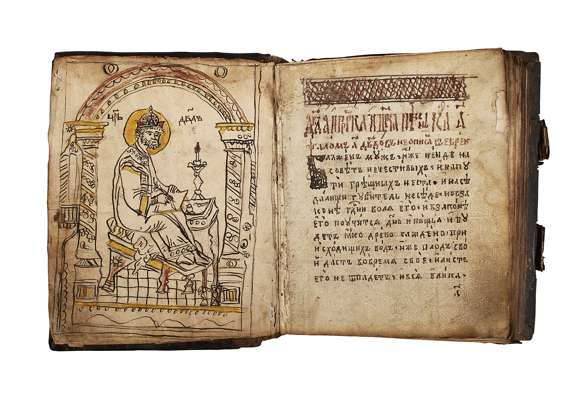 цр҃ь дв҃дъ
ѱаломъ дв҃довъ не описа въ еврей
блаженъ мужъ · иже не иде на
совѣтъ нечестивыхъ · и на пу
ти грѣшныхъ не ста · и на сѣ
далищи губитель не сѣде · но въ за
конѣ гд҃ни волѧ его · и въ законѣ
его поучитсѧ дн҃ь и нощь · и бу
детъ ꙗко древо сажено при
исходищихъ водъ · иже плодъ сво
й дастъ во времѧ свое · и листъ
его не ѿпадетъ · и всѧ елика